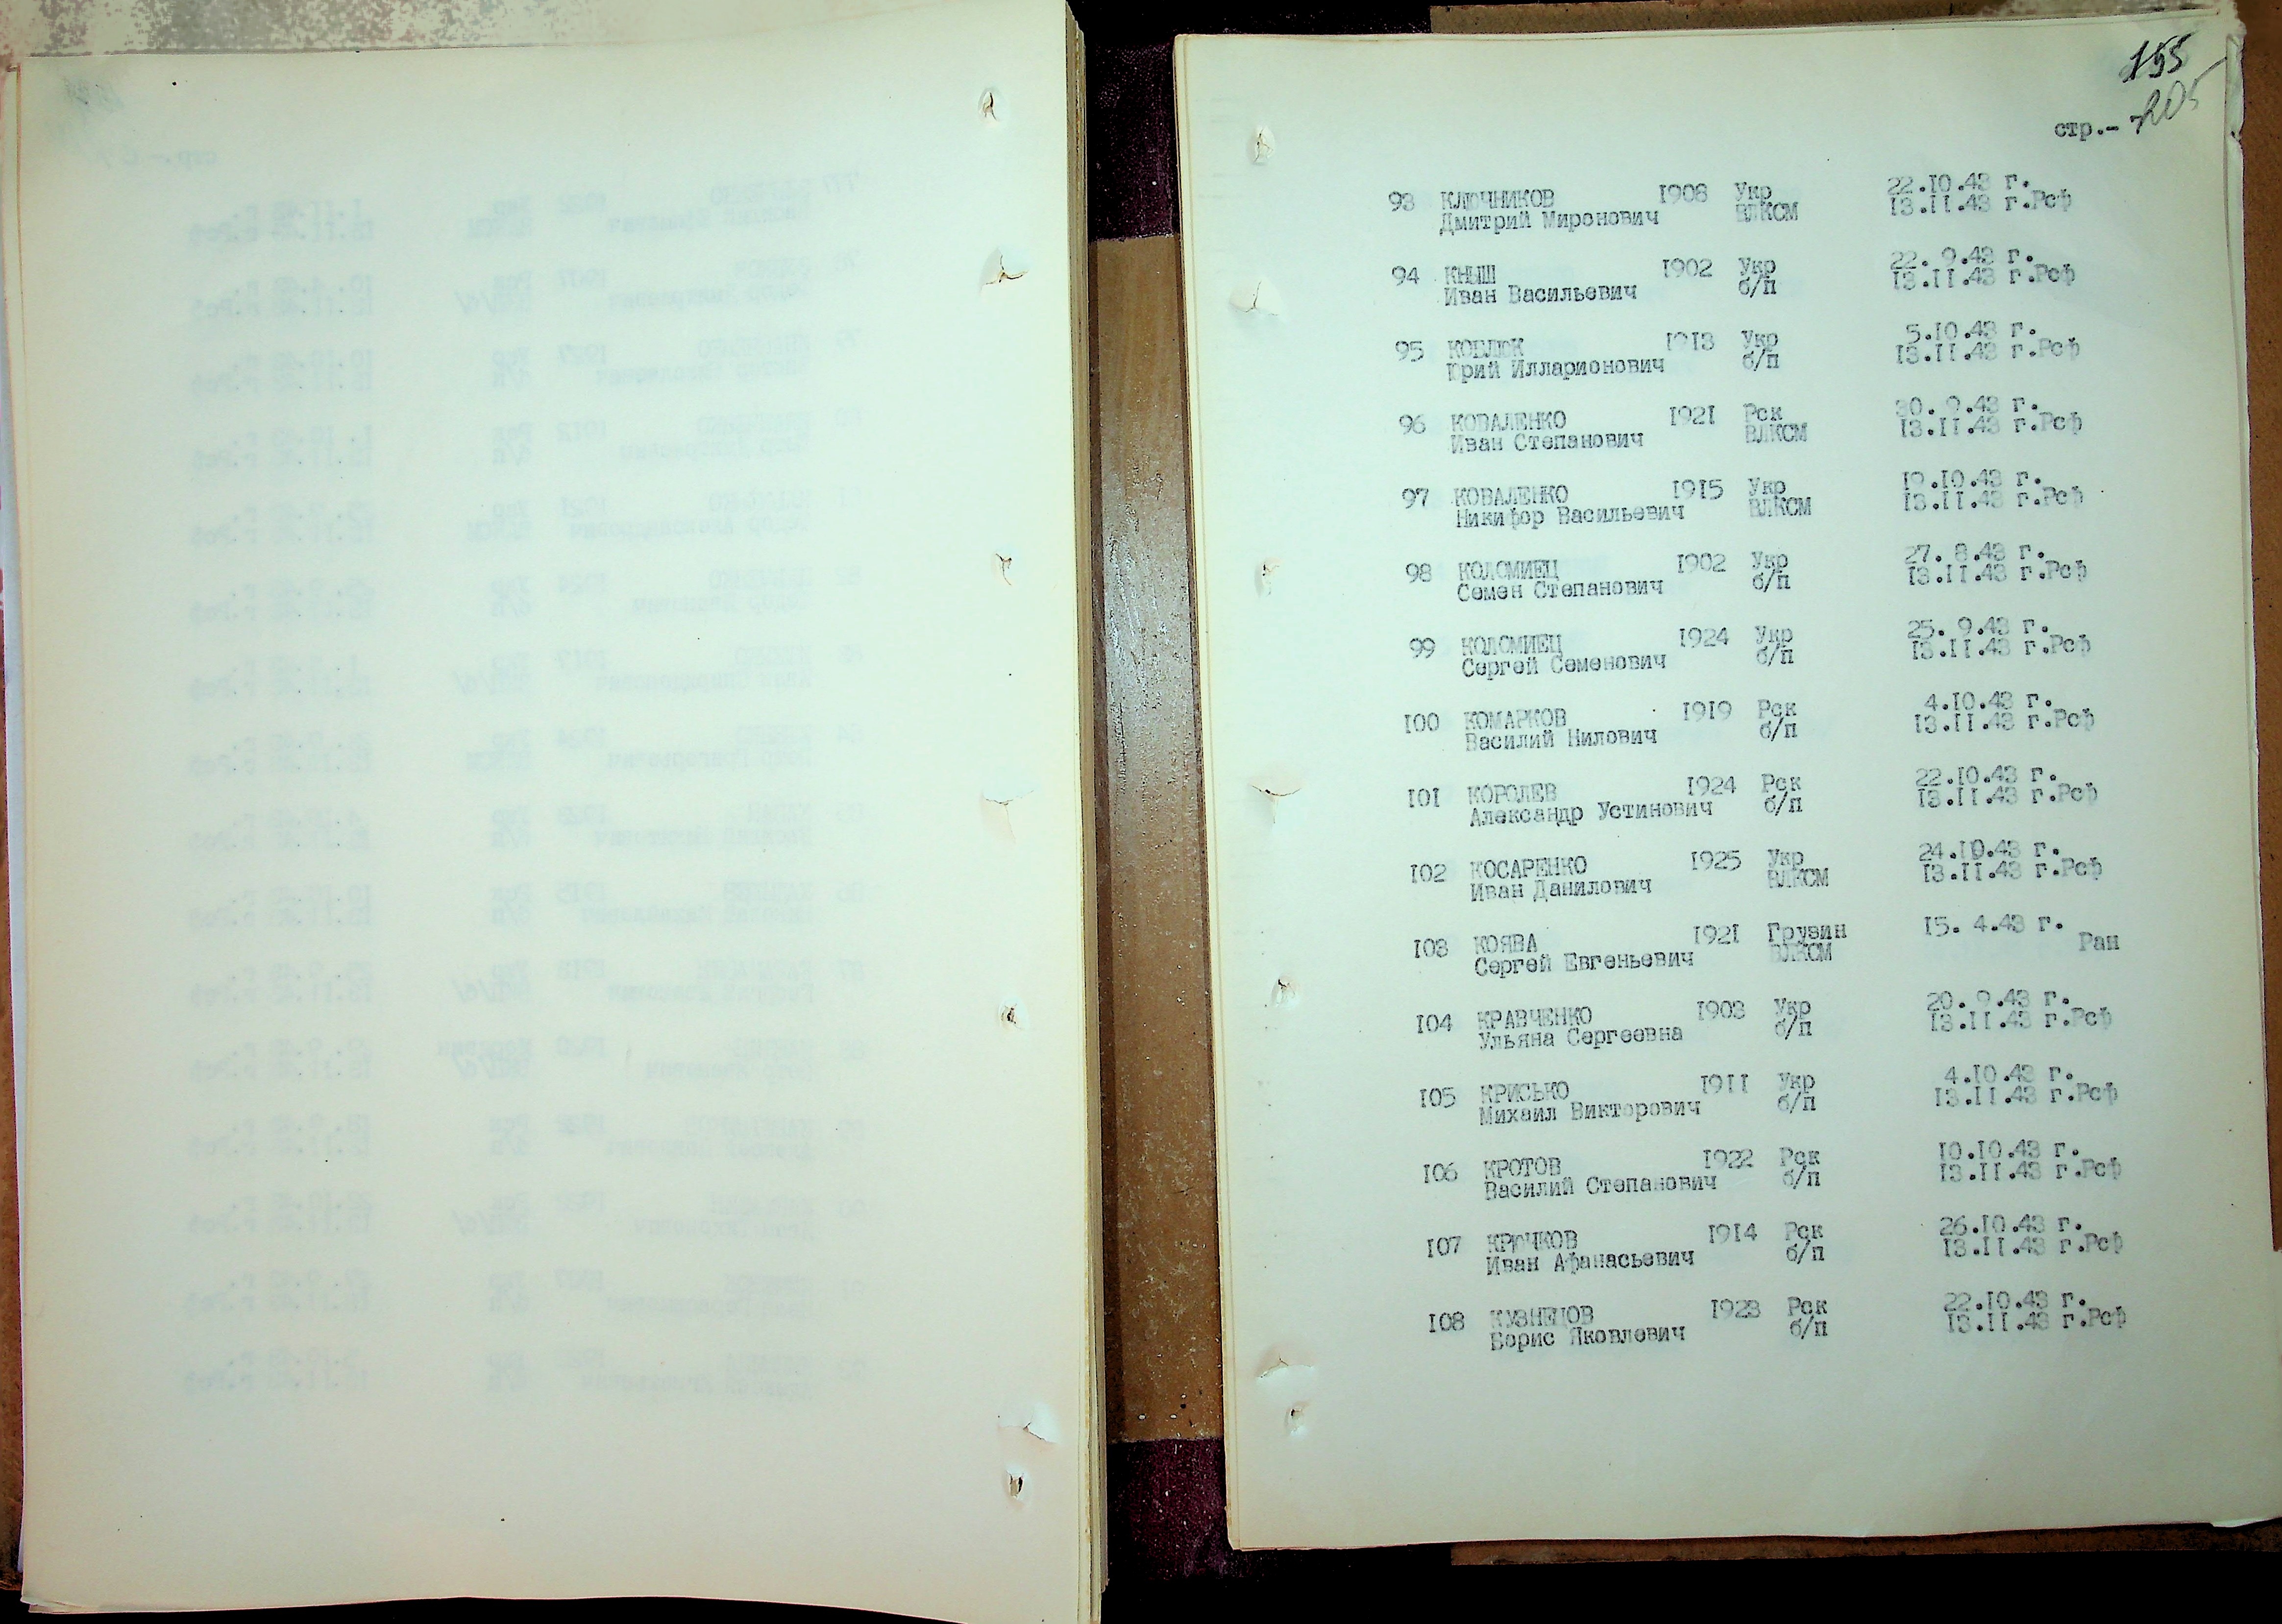 155
205
стр.-
93 КЛЮЧНИКОВ 1908 Укр 22.10.43 г.
Дмитрий Миронович ВЛКСМ 13.11.43 г.Рсф
94 КНЫШ 1902 Укр 22. 9.43 г.
Иван Васильевич б/п 13.11.43 г.Рсф
95 КОБЛЮК 1913 Укр 5.10.43 г.
Юрий Илларионович б/п 13.11.43 г.Рсф
96 КОВАЛЕНКО 1921 Рск 30. 9.43 г.
Иван Степанович ВЛКСМ 13.11.43 г.Рсф
97 КОВАЛЕНКО 1915 Укр 19.10.43 г.
Никифор Васильевич ВЛКСМ 13.11.43 г.Рсф
98 КОЛОМИЕЦ 1902 Укр 27. 8.43 г.
Семен Степанович б/п 13.11.43 г.Рсф
99 КОЛОМИЕЦ 1924 Укр 25. 9.43 г.
Сергей Семенович б/п 13.11.43 г.Рсф
100 КОМАРКОВ 1919 Рск 4.10.43 г.
Василий Нилович б/п 13.11.43 г.Рсф
101 КОРОЛЕВ 1924 Рск 22.10.43 г.
Александр Устинович б/п 13.11.43 г.Рсф
102 КОСАРЕНКО 1925 Укр 24.10.43 г.
Иван Данилович ВЛКСМ 13.11.43 г.Рсф
103 КОЯВА 1921 Грузин 15. 4.43 г.
Сергей Евгеньевич ВЛКСМ Ран
104 КРАВЧЕНКО 1903 Укр 20. 9.43 г.
Ульяна Сергеевна б/п 13.11.43 г.Рсф
105 КРИСЬКО 1911 Укр 4.10.43 г.
Михаил Викторович б/п 13.11.43 г.Рсф
106 КРОТОВ 1922 Рск 10.10.43 г.
Василий Степанович б/п 13.11.43 г.Рсф
107 КРЮЧКОВ 1914 Рск 26.10.43 г.
Иван Афанасьевич б/п 13.11.43 г.Рсф
108 КУЗНЕЦОВ 1923 Рск 22.10.43 г.
Борис Яковлевич б/п 13.11.43 г.Рсф